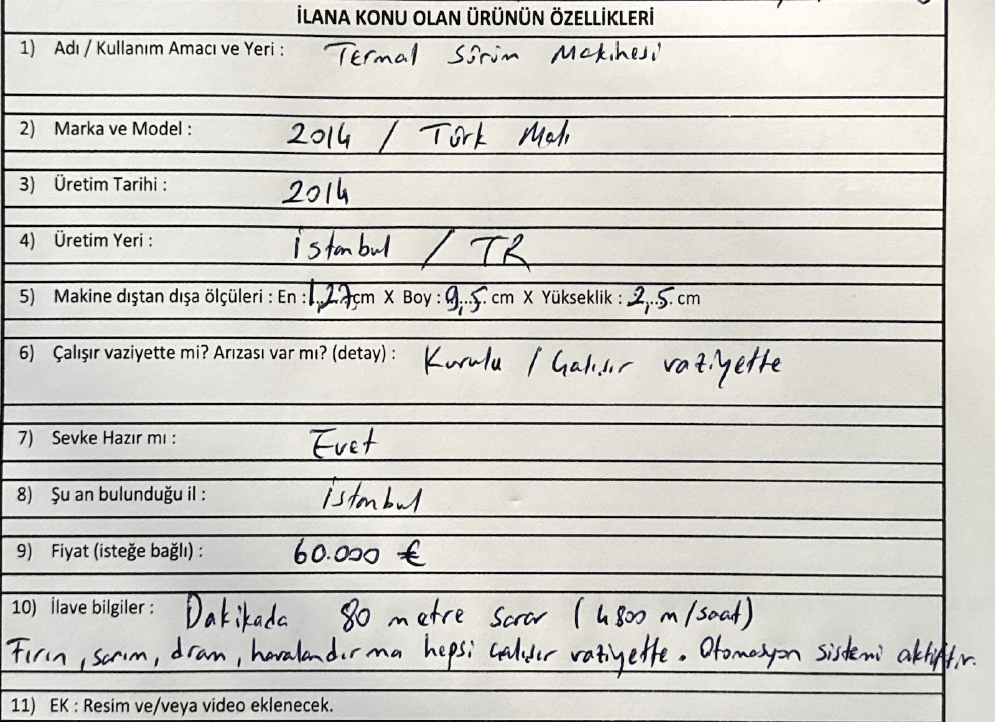 İLANA KONU OLAN ÜRÜNÜN ÖZELLİKLERİ
1) Adı / Kullanım Amacı ve Yeri : Termal Sürüm Makinesi
2) Marka ve Model : 2014 / Türk Malı
3) Üretim Tarihi : 2014
4) Üretim Yeri : İstanbul / TR
5) Makine dıştan dışa ölçüleri : En : 1,27 cm X Boy : 9,5 cm X Yükseklik : 2,5 cm
6) Çalışır vaziyette mi? Arızası var mı? (detay) : Kurulu / Çalışır vaziyette
7) Sevke Hazır mı : Evet
8) Şu an bulunduğu il : İstanbul
9) Fiyat (isteğe bağlı) : 60.000 €
10) İlave bilgiler : Dakikada 80 metre sarar (4800 m/saat)
Fırın, sarım, dram, havalandırma hepsi çalışır vaziyette. Otomasyon sistemi aktiftir.
11) EK : Resim ve/veya video eklenecek.